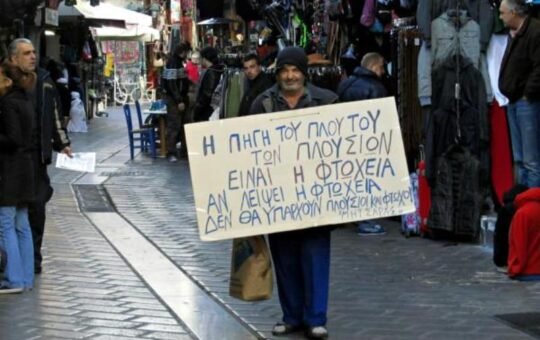 Η ΠΗΓΗ ΤΟΥ ΠΛΟΥΤΟΥ
ΤΩΝ ΠΛΟΥΣΙΟΝ
ΕΙΝΑΙ Η ΦΤΩΧΕΙΑ
ΑΝ ΛΕΙΨΕΙ Η ΦΤΩΧΕΙΑ
ΔΕΝ ΘΑ ΥΠΑΡΧΟΥΝ ΠΛΟΥΣΙΟΙ ΚΑΙ ΦΤΩΧΟΙ